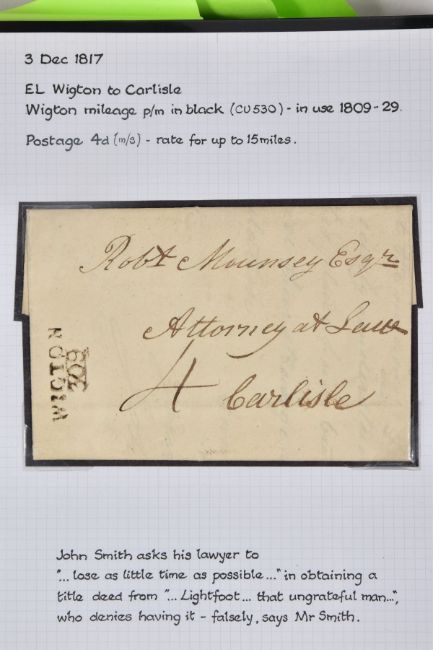 3 Dec 1817
EL Wigton to Carlisle
Wigton mileage p/m in black (CU530) - in use 1809-29.
Postage 4d (m/s) - rate for up to 15 miles.
Robt Mounsey Esqr
Attorney at Law
4 Carlisle
WIGTON
309
John Smith asks his lawyer to
"... lose as little time as possible..." in obtaining a
title deed from "... Lightfoot... that ungrateful man...",
who denies having it - falsely, says Mr Smith.